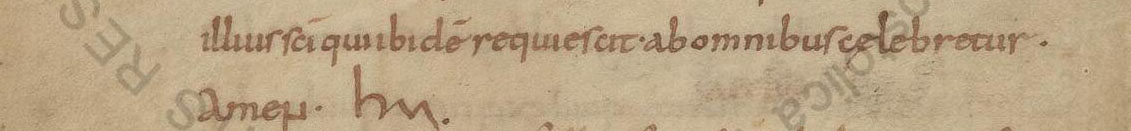 illius sci̅ qui ibide̅ requiescit · ab omnibus celebretur .
Amen · hm .